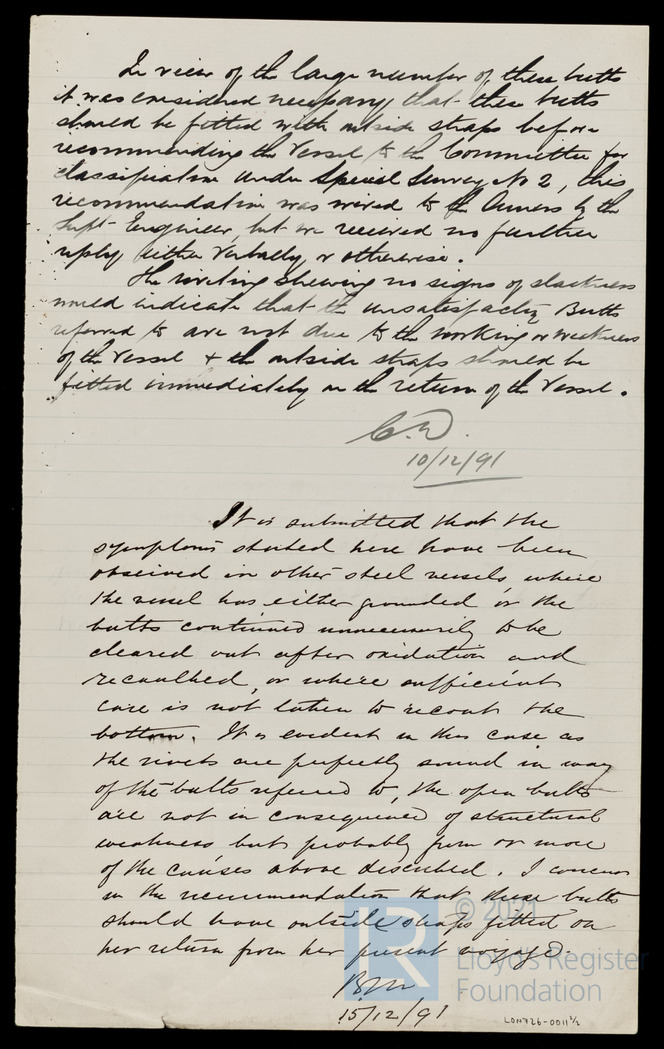 In view of the large number of these butts
it was considered necessary that these butts
should be fitted with outside straps before
recommending the Vessel to the Committee for
classification under Special Survey No 2, this
recommendation was wired to the Owners by the
Supt- Engineer but we received no further
reply either Verbally or otherwise.
The riveting shewing no signs of slackness
would indicate that the unsatisfactory Butts
referred to are not due to the working or weakness
of the Vessel & the outside straps should be
fitted immediately on the return of the Vessel.
10/12/91
It is submitted that the
symptoms stated here have been
observed in other steel vessels where
the vessel has either grounded or the
butts continued unnecessarily to be
cleared out after oxidation and
recaulked, or where sufficient
care is not taken to recoat the
bottom. It is evident in this case as
the rivets are perfectly sound in way
of the butts referred to, the open butts
are not in consequence of structural
weakness but probably from or more
of the causes above described. I concur
in the recommendation that these butts
should have outside straps fitted on
her return from her present voyage.
15/12/91
© 2021
Lloyd's Register
Foundation
LR
LONR26-0011½